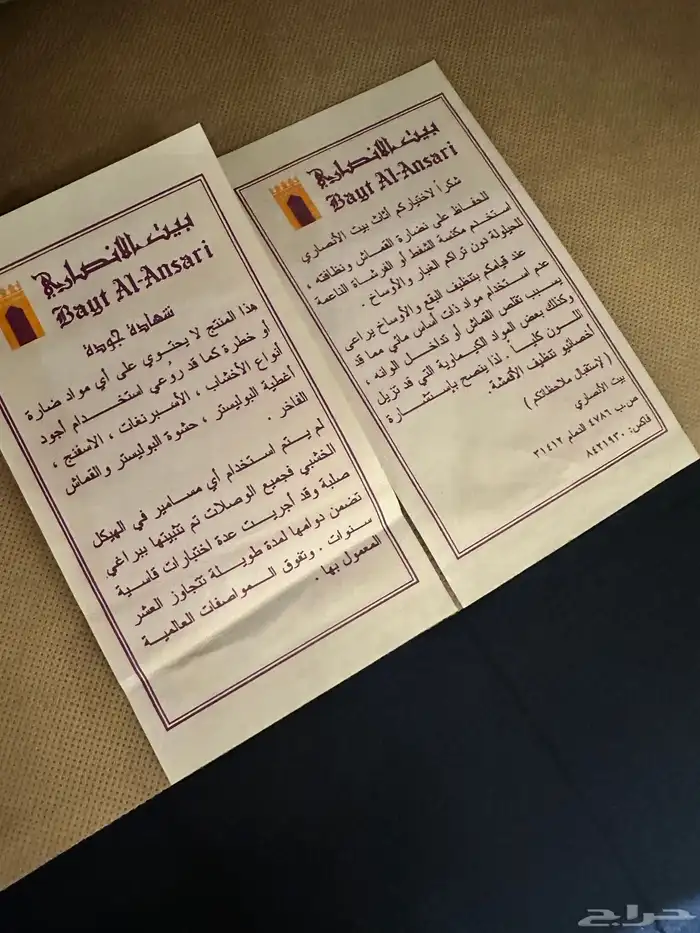 بيت الانصاري
Bayt Al-Ansari
شهادة جودة
هذا المنتج لا يحتوي على أي مواد ضارة
أو خطرة كما قد روعي استخدام أجود
أنواع الأخشاب ، الأسبرنغات ، الاسفنج ،
أغطية البوليستر ، حشوة البوليستر والقماش
الفاخر .
لم يتم استخدام أي مسامير في الهيكل
الخشبي فجميع الوصلات تم تثبيتها ببراغي
صلبة وقد أجريت عدة اختبارات قاسية
تضمن دوامها لمدة طويلة تتجاوز العشر
سنوات . وتفوق المواصفات العالمية
المعمول بها .
بيت الانصاري
Bayt Al-Ansari
شكراً لاختياركم أثاث بيت الأنصاري
للحفاظ على نضارة القماش ونظافته ،
استخدم مكنسة الشفط أو الفرشاة الناعمة
للحيلولة دون تراكم الغبار والأوساخ .
عند قيامكم بتنظيف البقع والأوساخ يراعى
عدم استخدام مواد ذات أساس مائي مما قد
يسبب تقلص القماش أو تداخل الوانه ،
وكذلك بعض المواد الكيماوية التي قد تزيل
اللون كلياً . لذا ينصح بإستشارة
أخصائيو تنظيف الأقمشة.
( لإستقبال ملاحظاتكم )
بيت الأنصاري
ص.ب ٤٧٨٦ الدمام ٣١٤١٢
فاكس: ٨٤٢١٩٣٠
حراج